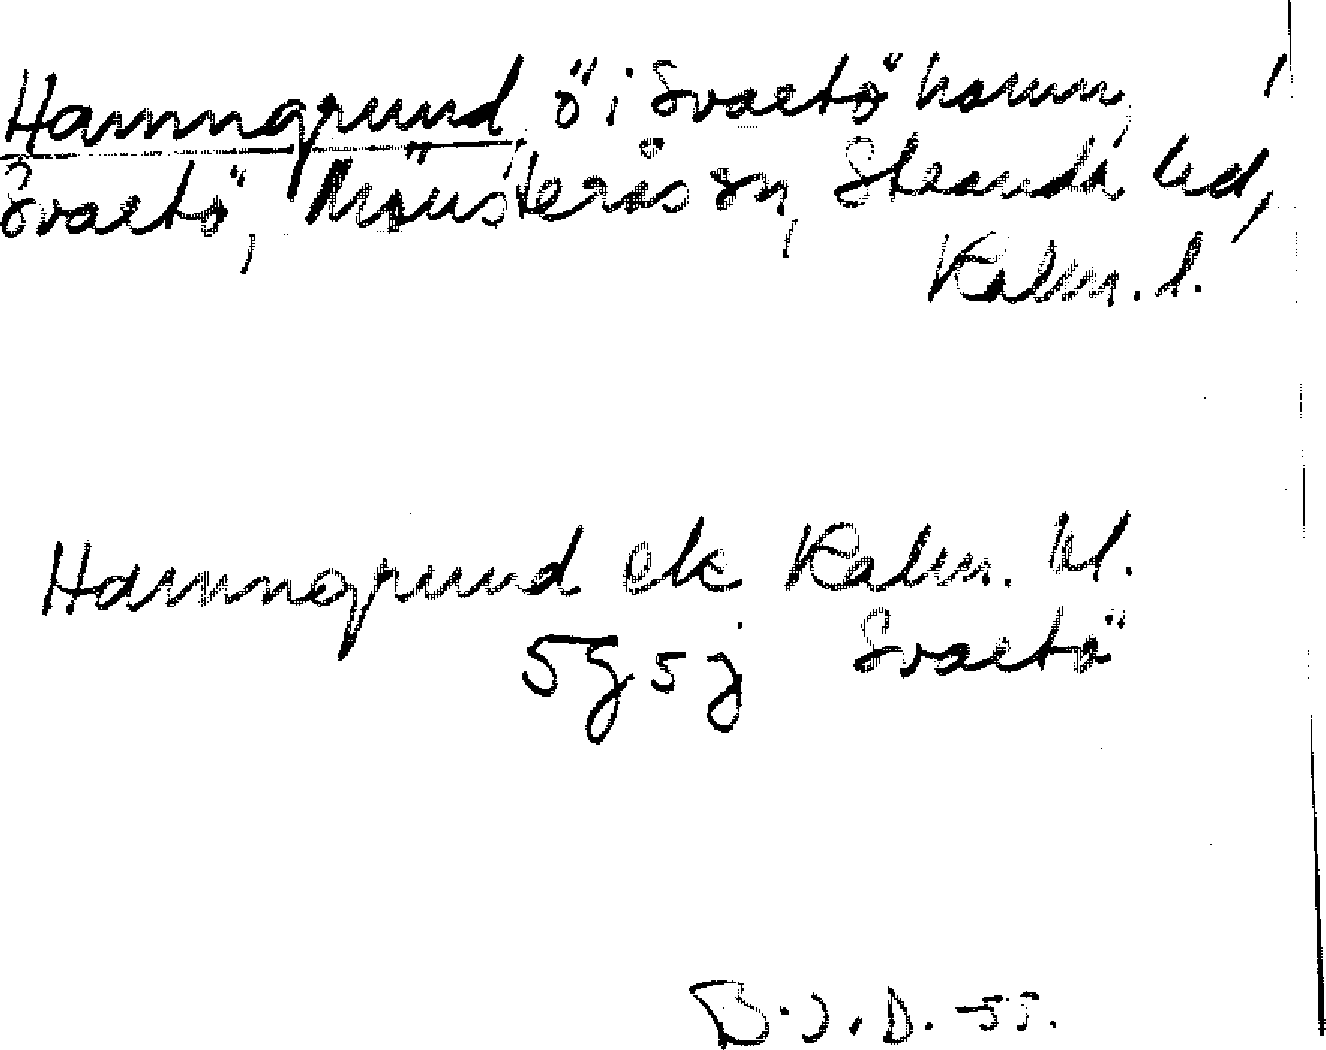 Hamngrund, ö i Svartö hamn,
Svartö, Mönsterås sn, Stranda hd,
Kalm. l.
Hamngrund ek Kalm. hl.
5g5j Svartö
B.J.D. -55.